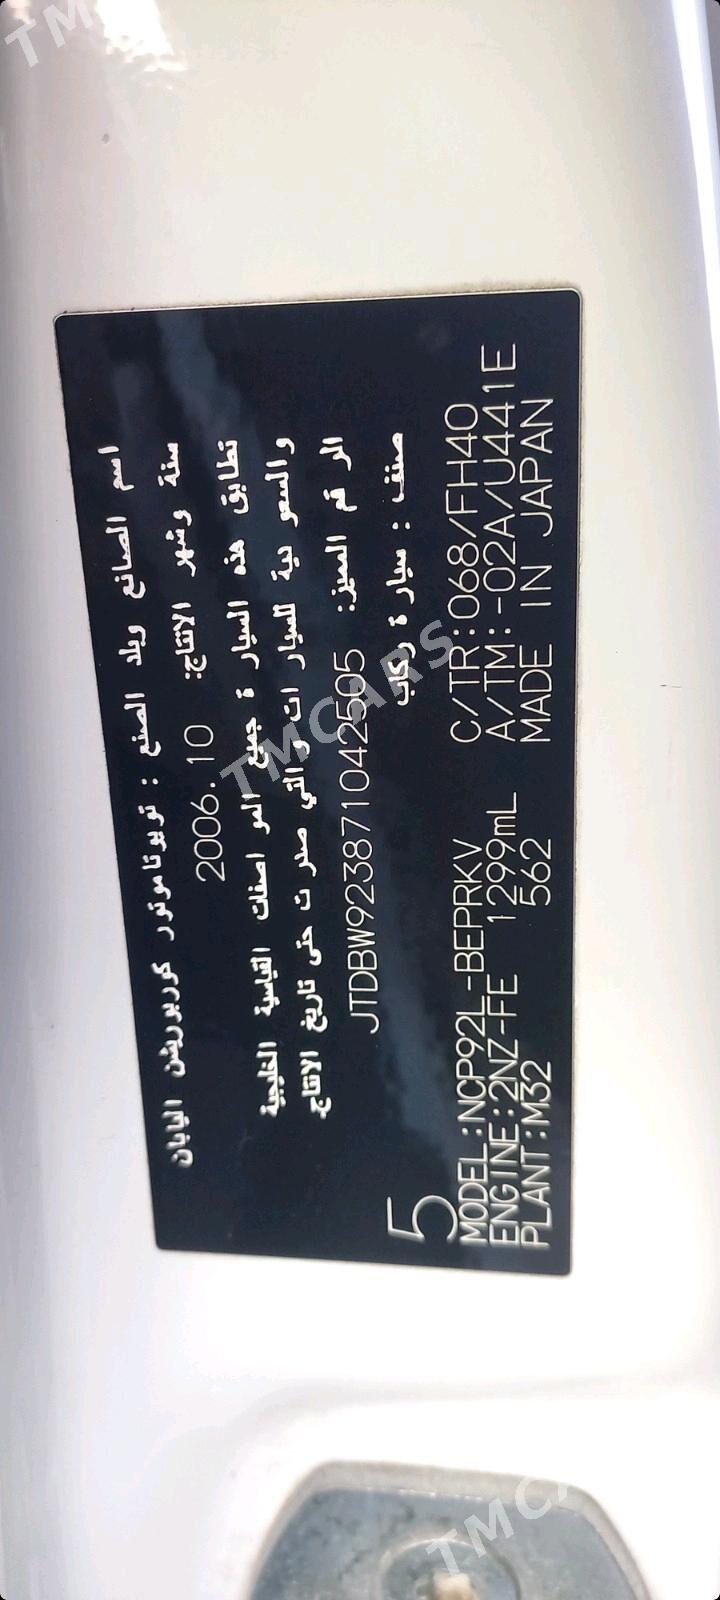 اسم الصانع وبلد الصنع : تويوتا موتور كوربوريشن اليابان
سنة وشهر الانتاج: 2006.10
تطابق هذه السيارة جميع المواصفات القياسية الخليجية
والسعودية للسيارات والتي صدرت حتى تاريخ الانتاج.
الرقم المميز: JTDBW923871042505
صنف : سيارة ركاب
5
MODEL:NCP92L-BEPRKV C/TR:068/FH40
ENGINE:2NZ-FE 1299mL A/TM:-02A/U441E
PLANT:M32 562 MADE IN JAPAN
TMCARS